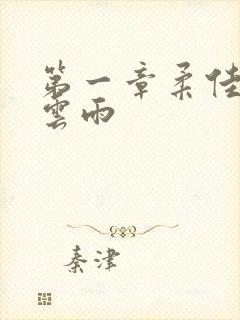 第一章柔佳
雲雨
秦津